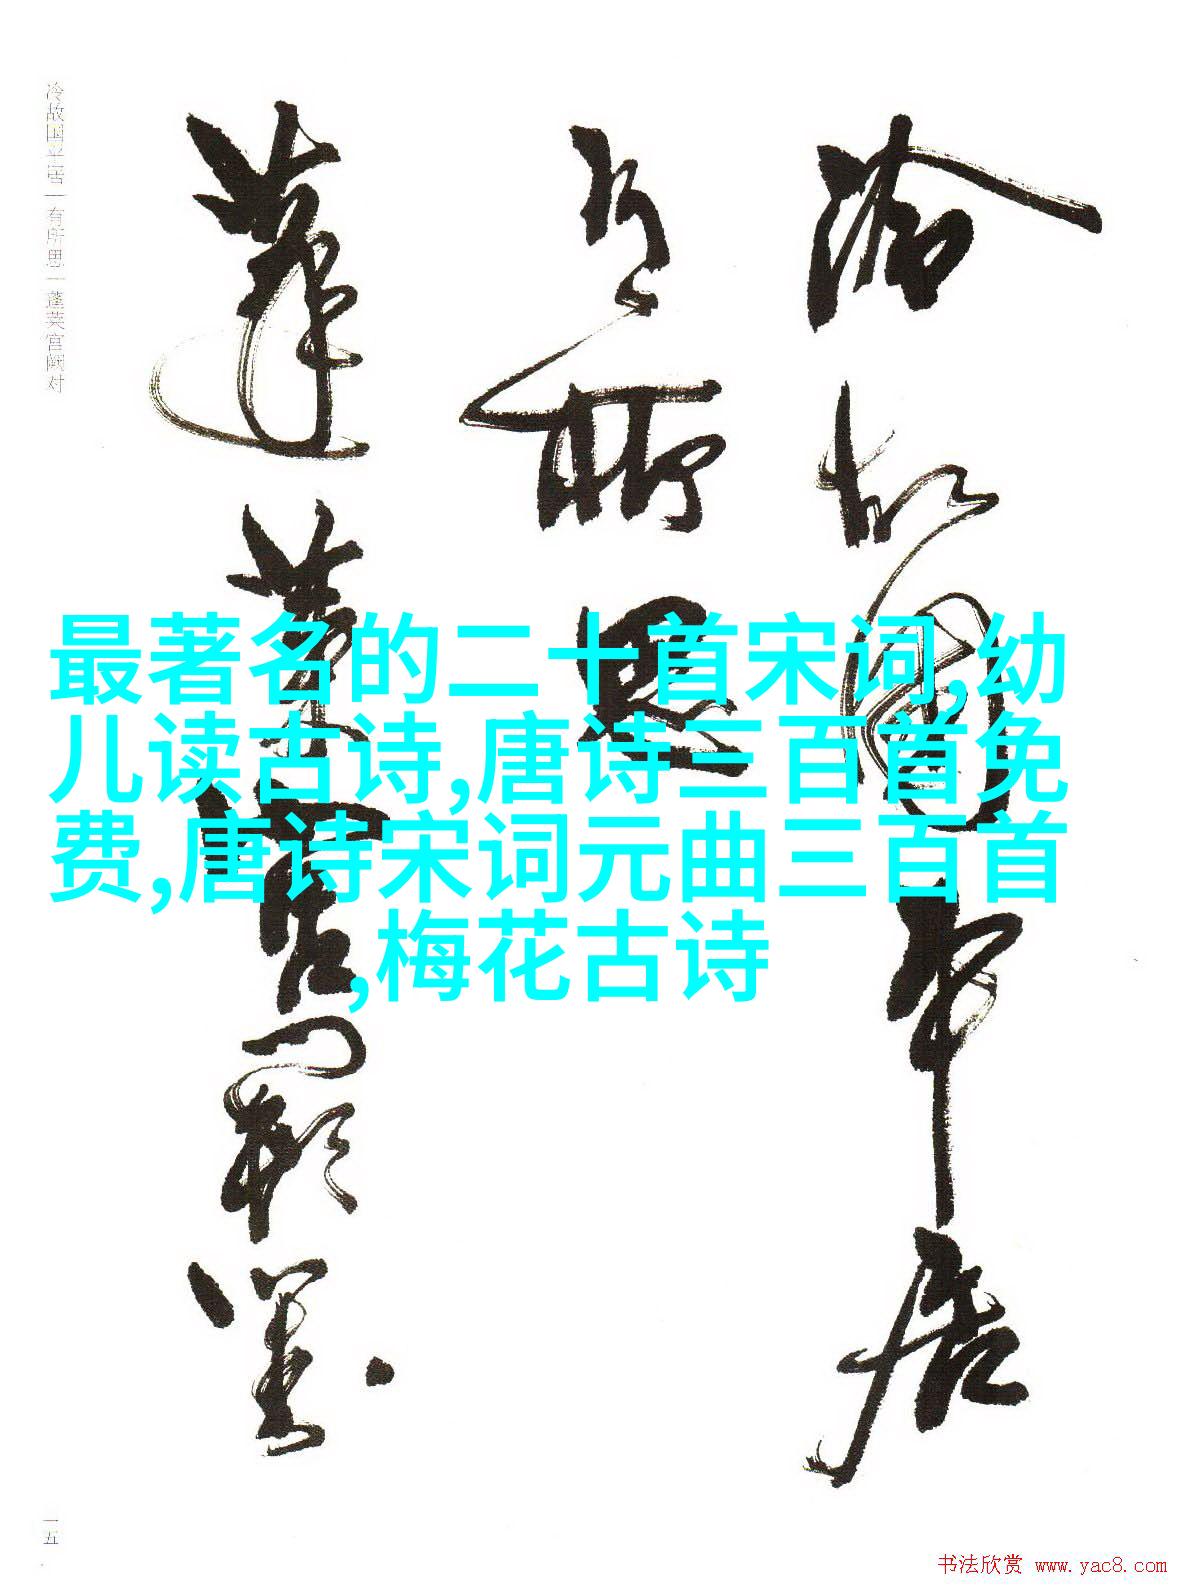 冷故国平居
有所思
蓬莱宫阙对
冷故国平居|有所思|蓬莱宫阙对
最著名的二十首宋词,幼
儿读古诗,唐诗三百首免
费,唐诗宋词元曲三百首
,梅花古诗
一五
书法欣赏 www.yac8.com